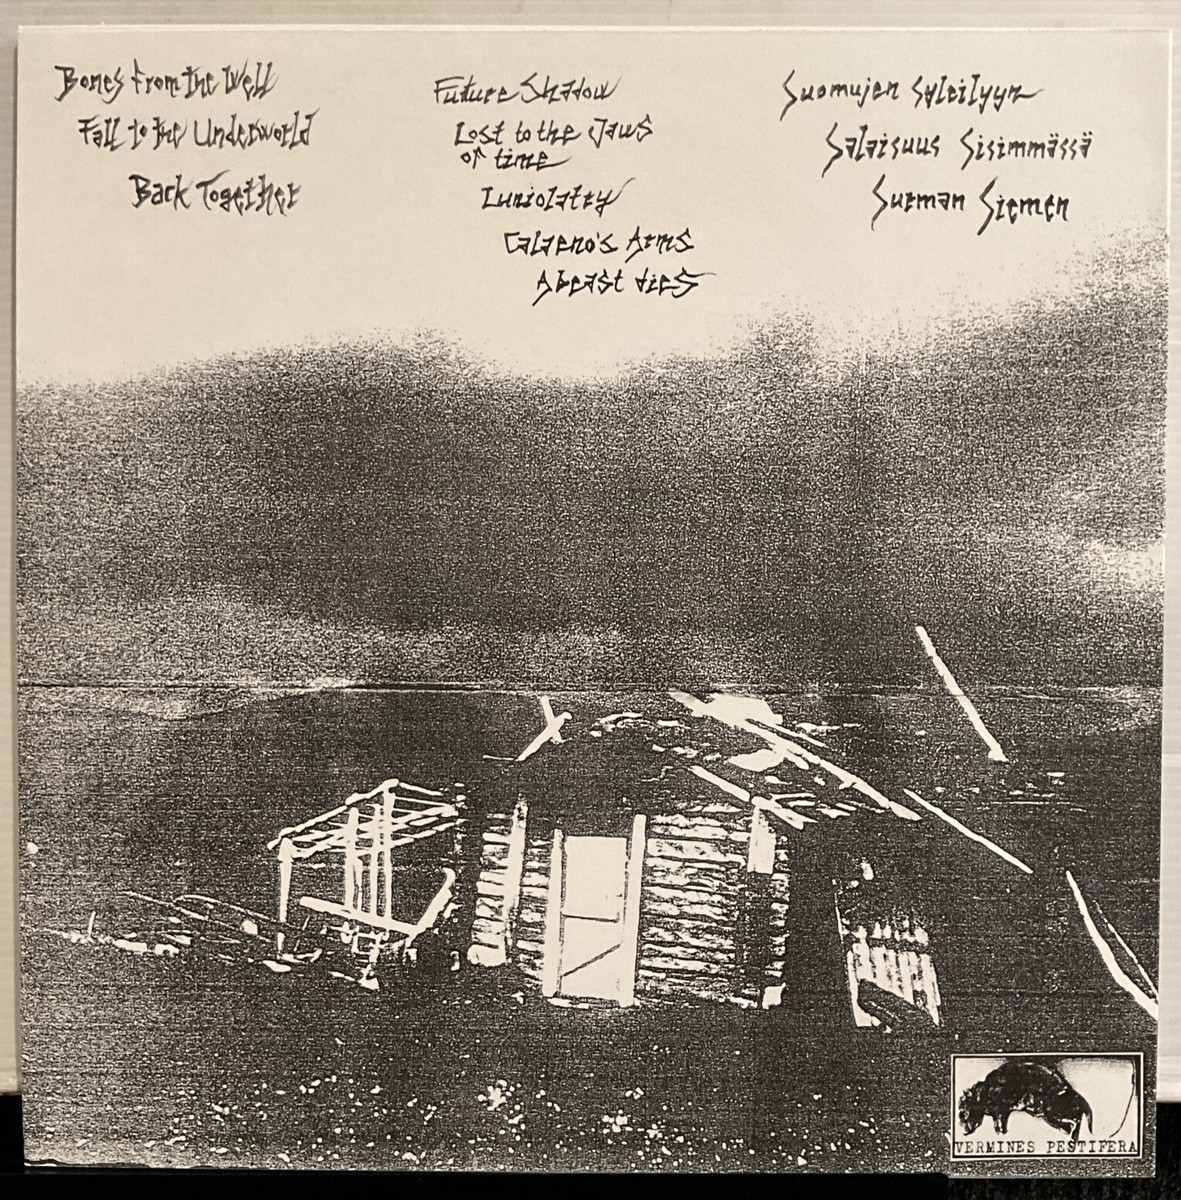 Bones from the Well
Fall to the Underworld
Back Together
Future Shadow
Lost to the Jaws
of time
Luniolatry
Calaeno's Arms
A beast dies
Suomujen Syleilyyn
Salaisuus Sisimmässä
Surman Siemen
VERMINES PESTIFERA